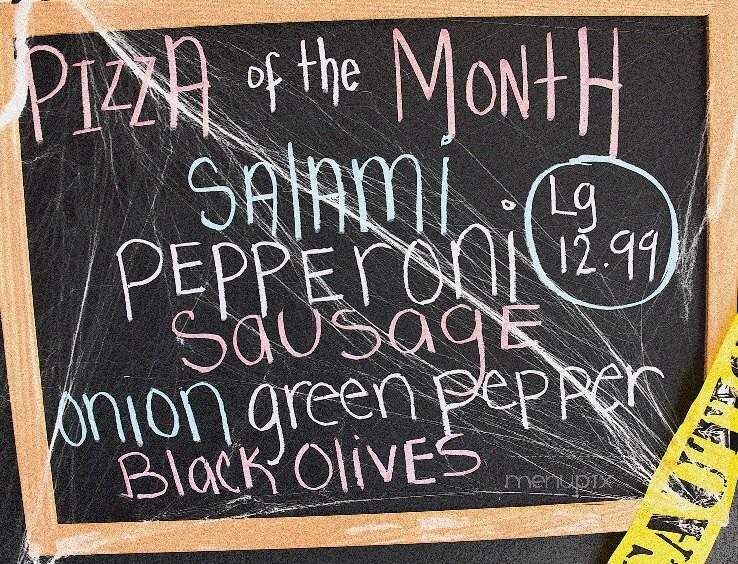 PIZZA of the MONTH
SAlAMi
PEPPEroni
SausagE
Lg
12.99
onion green pepper
BlacK OliVES
menupix
CAUTI